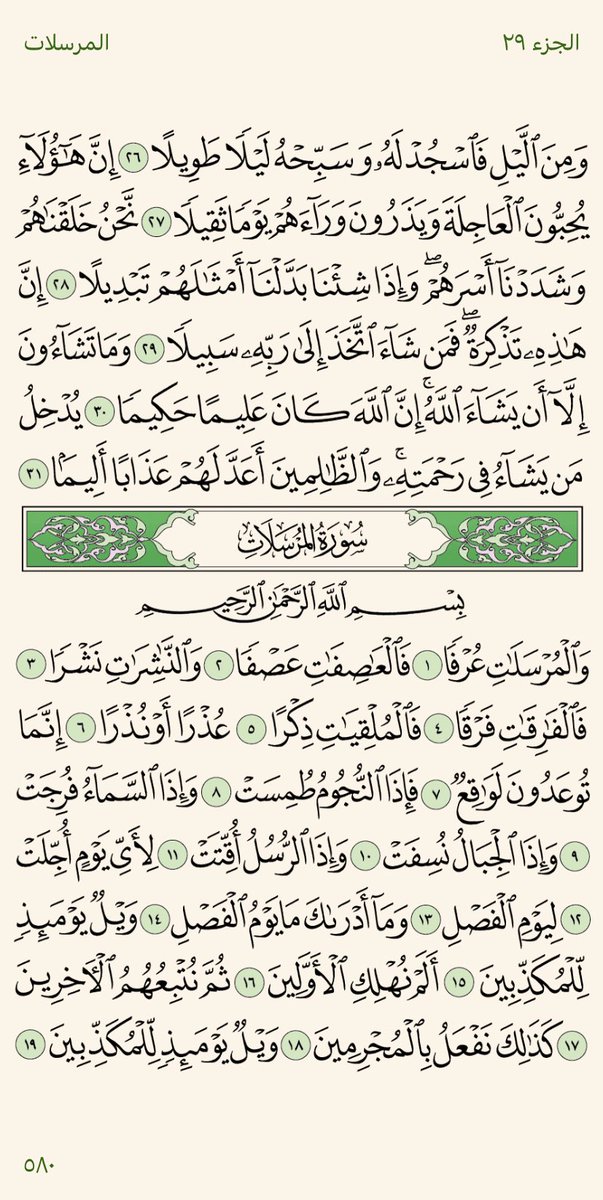 الجزء ٢٩
المرسلات
وَمِنَ ٱلَّيْلِ فَٱسْجُدْ لَهُۥ وَسَبِّحْهُ لَيْلًا طَوِيلًا ٢٦ إِنَّ هَـٰٓؤُلَآءِ
يُحِبُّونَ ٱلْعَاجِلَةَ وَيَذَرُونَ وَرَآءَهُمْ يَوْمًا ثَقِيلًا ٢٧ نَّحْنُ خَلَقْنَـٰهُمْ
وَشَدَدْنَآ أَسْرَهُمْ ۖ وَإِذَا شِئْنَا بَدَّلْنَآ أَمْثَـٰلَهُمْ تَبْدِيلًا ٢٨ إِنَّ
هَـٰذِهِۦ تَذْكِرَةٌ ۖ فَمَن شَآءَ ٱتَّخَذَ إِلَىٰ رَبِّهِۦ سَبِيلًا ٢٩ وَمَا تَشَآءُونَ
إِلَّآ أَن يَشَآءَ ٱللَّهُ ۚ إِنَّ ٱللَّهَ كَانَ عَلِيمًا حَكِيمًا ٣٠ يُدْخِلُ
مَن يَشَآءُ فِى رَحْمَتِهِۦ ۚ وَٱلظَّـٰلِمِينَ أَعَدَّ لَهُمْ عَذَابًا أَلِيمًۢا ٣١
سُورَةُ المُرۡسَلَاتِ
بِسْمِ ٱللَّهِ ٱلرَّحْمَـٰنِ ٱلرَّحِيمِ
وَٱلْمُرْسَلَـٰتِ عُرْفًا ١ فَٱلْعَـٰصِفَـٰتِ عَصْفًا ٢ وَٱلنَّـٰشِرَٰتِ نَشْرًا ٣
فَٱلْفَـٰرِقَـٰتِ فَرْقًا ٤ فَٱلْمُلْقِيَـٰتِ ذِكْرًا ٥ عُذْرًا أَوْ نُذْرًا ٦ إِنَّمَا
تُوعَدُونَ لَوَٰقِعٌ ٧ فَإِذَا ٱلنُّجُومُ طُمِسَتْ ٨ وَإِذَا ٱلسَّمَآءُ فُرِجَتْ
٩ وَإِذَا ٱلْجِبَالُ نُسِفَتْ ١٠ وَإِذَا ٱلرُّسُلُ أُقِّتَتْ ١١ لِأَىِّ يَوْمٍ أُجِّلَتْ
١٢ لِيَوْمِ ٱلْفَصْلِ ١٣ وَمَآ أَدْرَىٰكَ مَا يَوْمُ ٱلْفَصْلِ ١٤ وَيْلٌ يَوْمَئِذٍ
لِّلْمُكَذِّبِينَ ١٥ أَلَمْ نُهْلِكِ ٱلْأَوَّلِينَ ١٦ ثُمَّ نُتْبِعُهُمُ ٱلْـَٔاخِرِينَ
١٧ كَذَٰلِكَ نَفْعَلُ بِٱلْمُجْرِمِينَ ١٨ وَيْلٌ يَوْمَئِذٍ لِّلْمُكَذِّبِينَ ١٩
٥٨٠